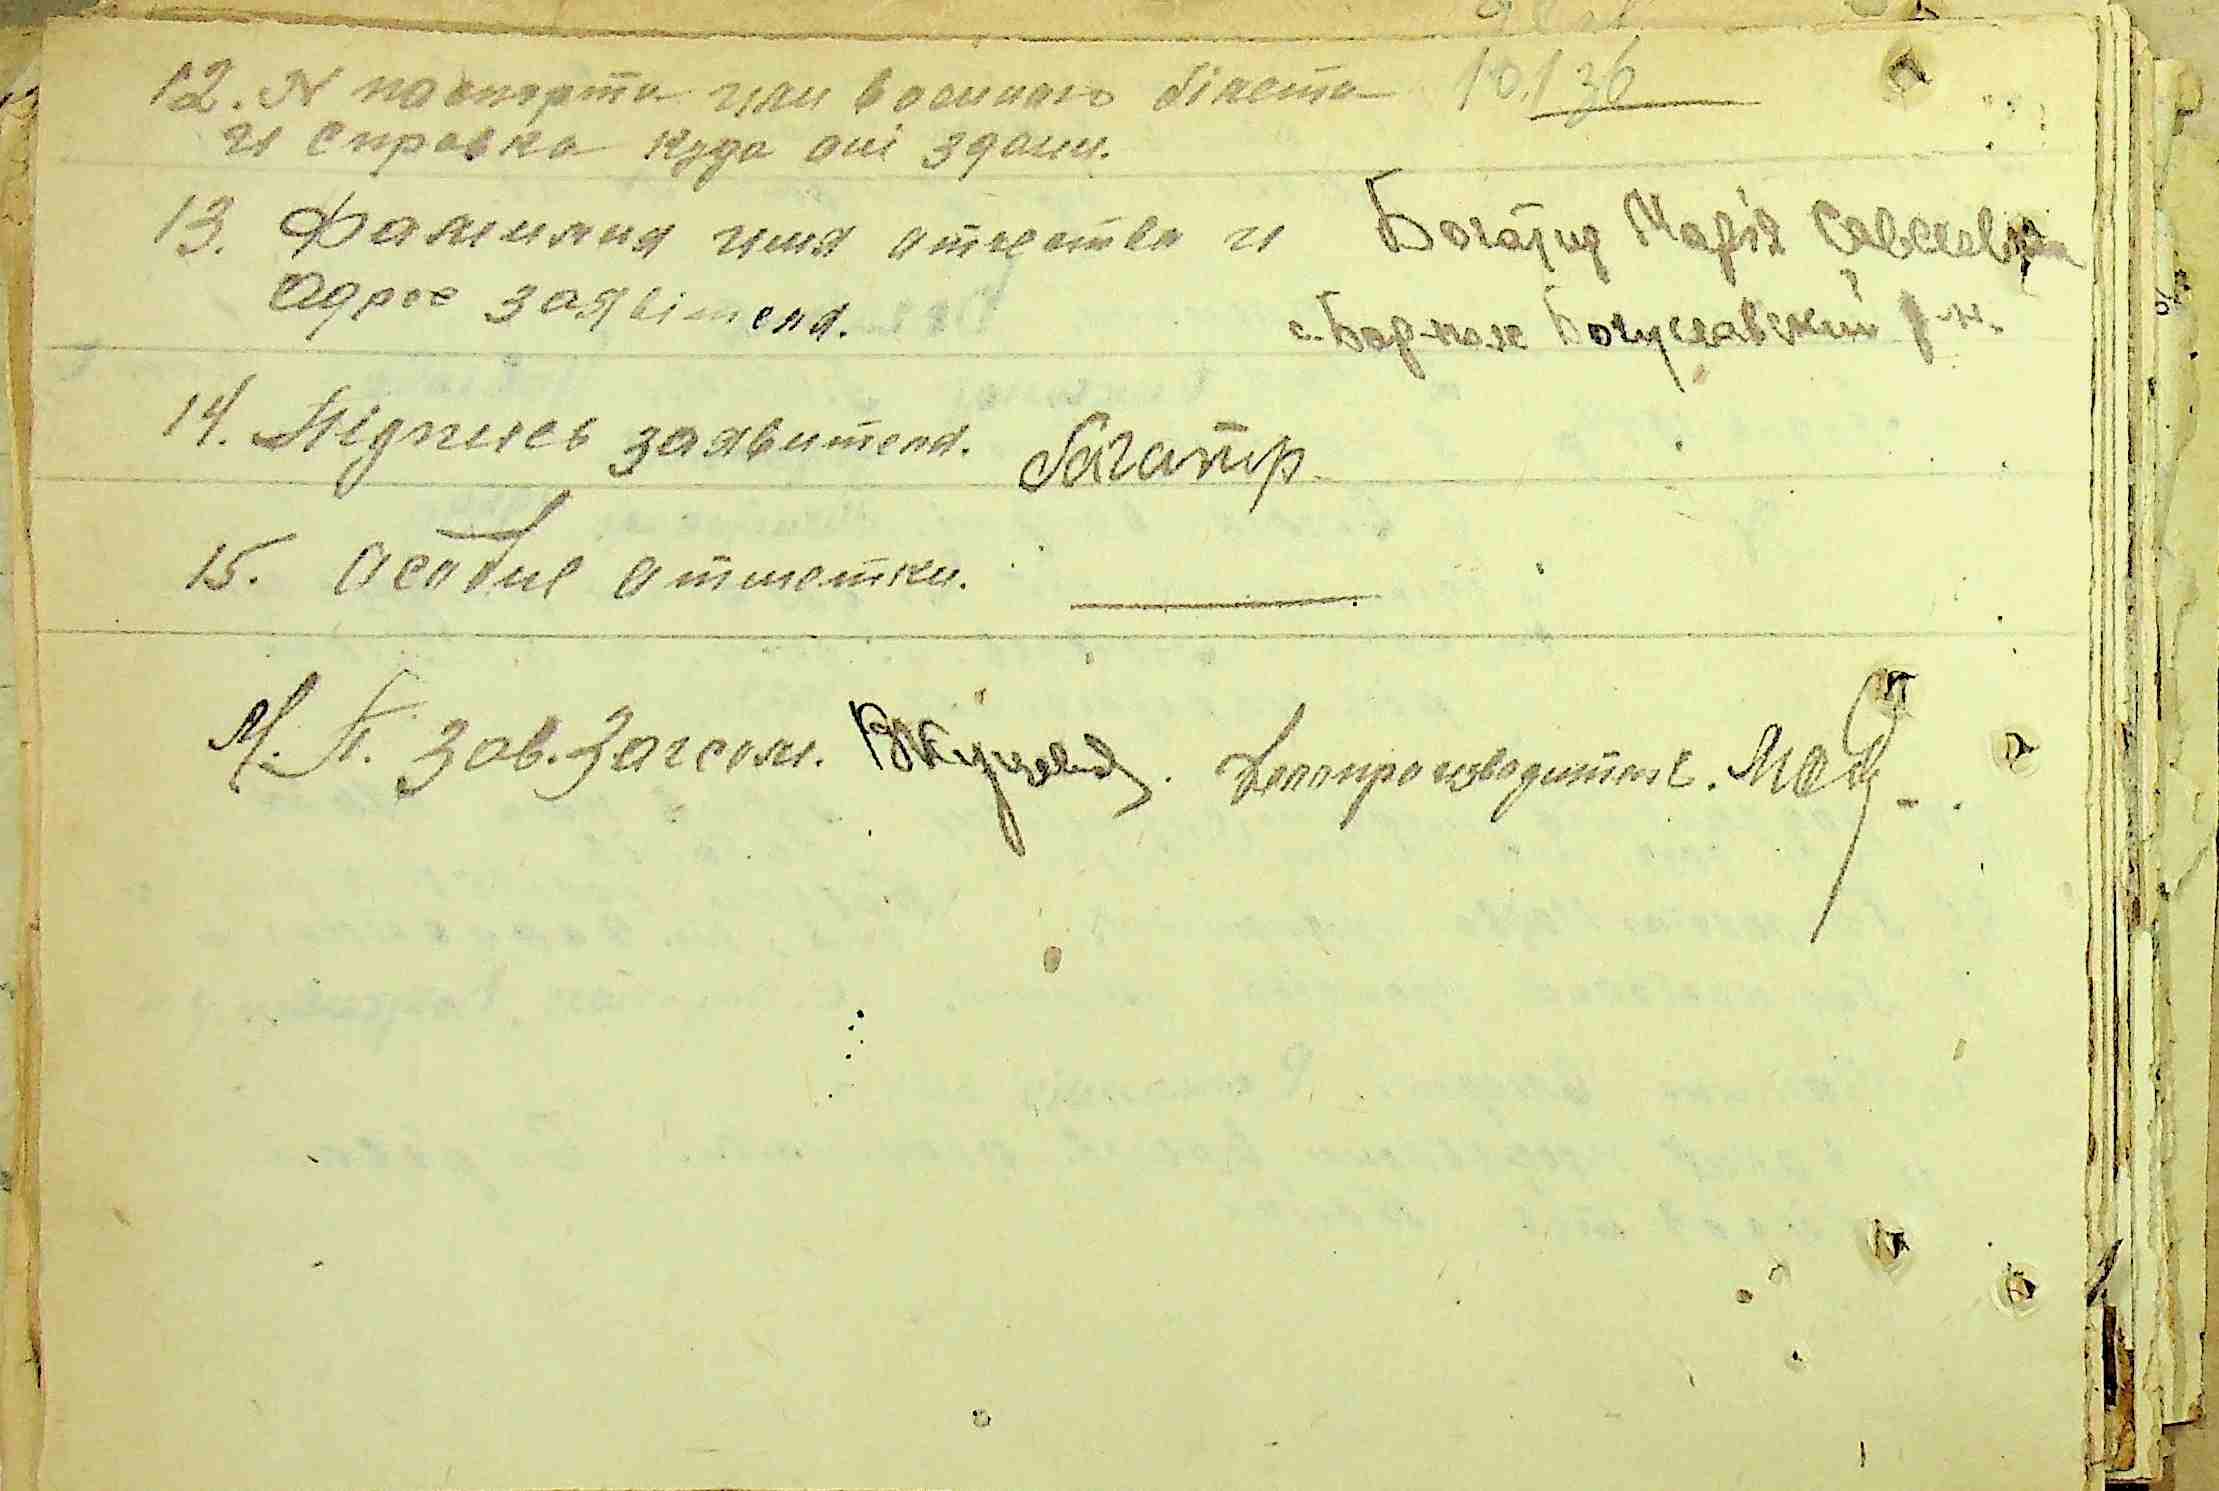 12. N паспорта или военного білета
и справка куда оні здани.
13. Фамилия имя отчество и Богатир Марія Савеловна
Адрес заявітеля. с. Бар-поле Богуславский р-н.
14. Підпись заявителя. Богатир
15. Особие отметки.
М. П. Зав. Загсом. Делопроизводитель.